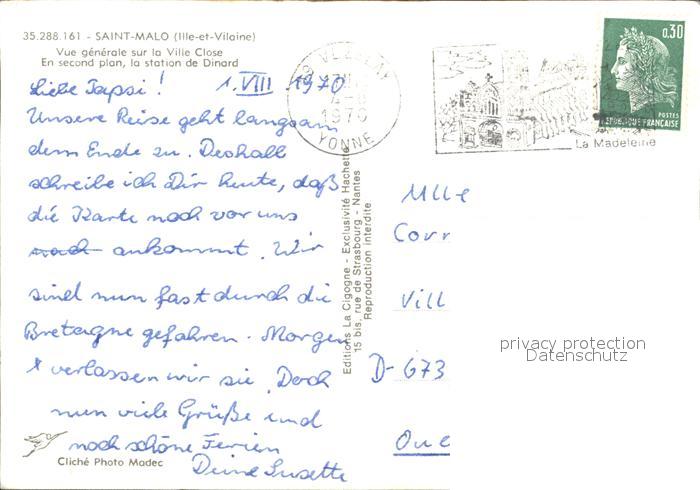 35.288.161 - SAINT-MALO (Ille-et-Vilaine)
Vue générale sur la Ville Close
En second plan, la station de Dinard
Liebe Tapsi! 1. VIII. 1970
Unsere Reise geht langsam
dem Ende zu. Deshalb
schreibe ich Dir heute, daß
die Karte noch vor uns
ankommt. Wir
sind nun fast durch die
Bretagne gefahren. Morgen
verlassen wir sie. Doch
nun viele Grüße und
noch schöne Ferien
Deine Susette
Cliché Photo Madec
Editions La Cigogne - Exclusivité Hachette
15 bis, rue de Strasbourg - Nantes
Reproduction interdite
VEZELAY
1970
YONNE
La Madeleine
0,30
POSTES
REPUBLIQUE FRANÇAISE
Mlle
Vill
D-673
privacy protection
Datenschutz